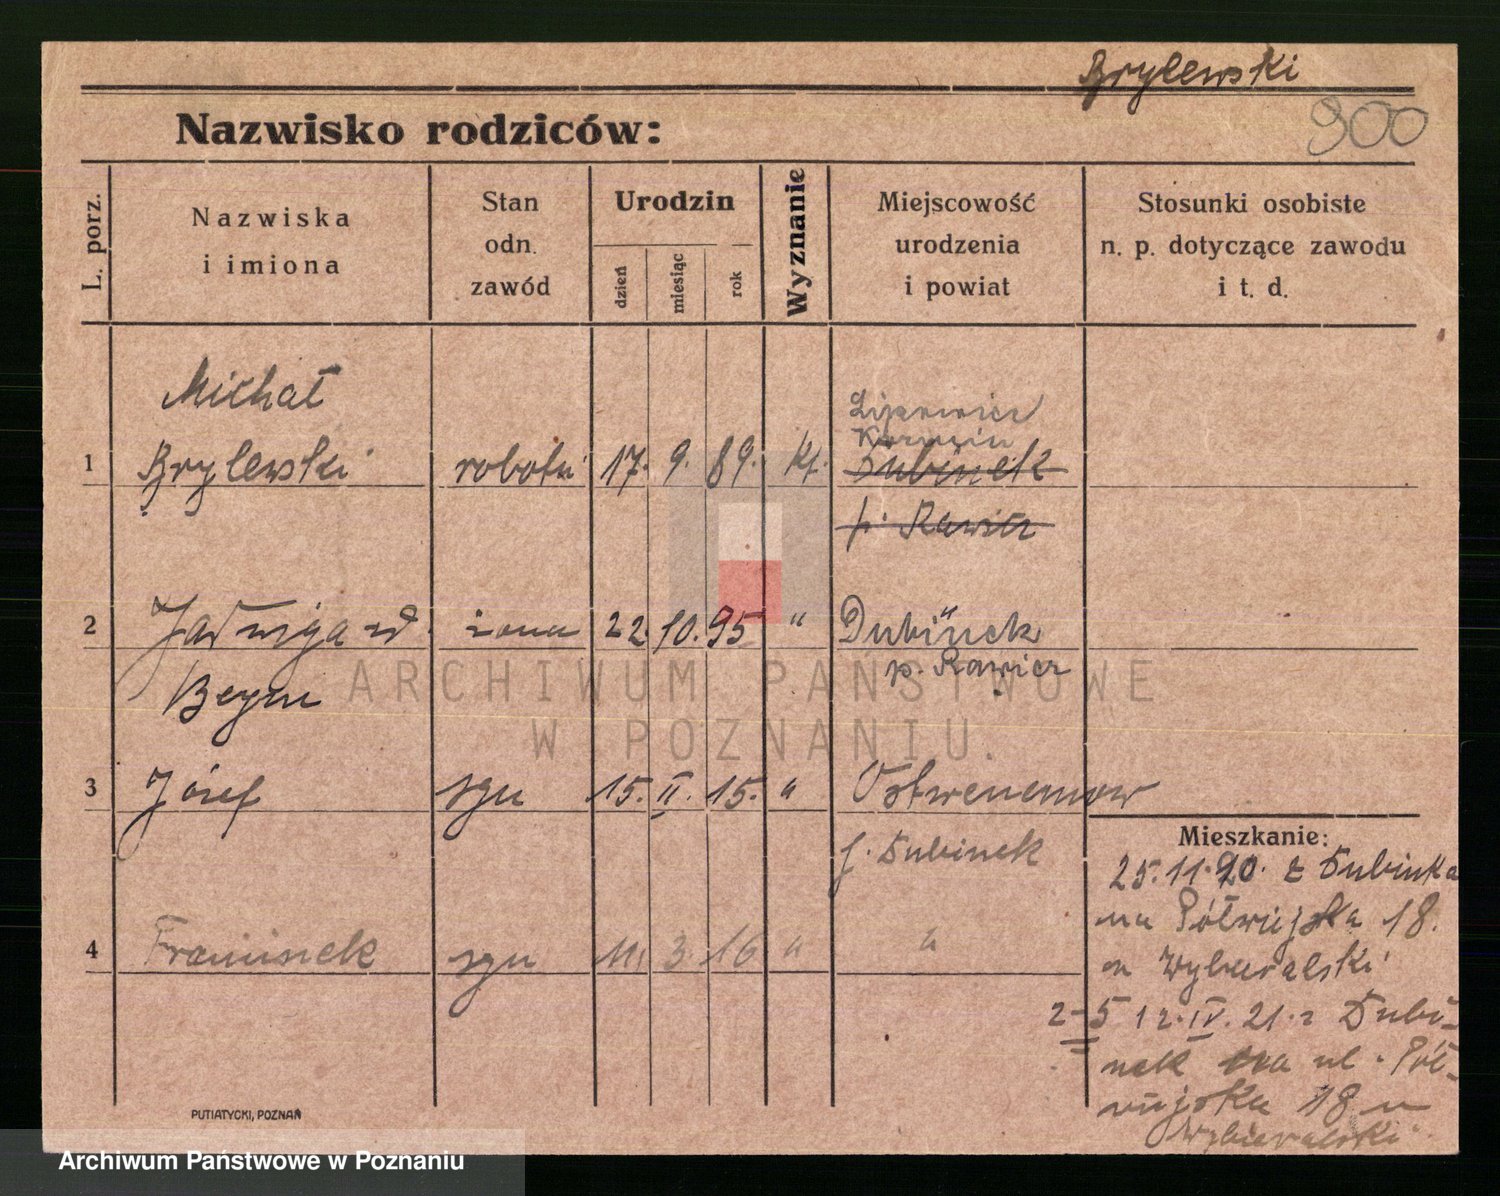 Brylewski
900
Nazwisko rodziców:
L. porz.
Nazwiska
i imiona
Stan
odn.
zawód
Urodzin
dzień
miesiąc
rok
Wyznanie
Miejscowość
urodzenia
i powiat
Stosunki osobiste
n. p. dotyczące zawodu
i t. d.
Michał
1 Brylewski robotn 17. 9. 89. kt. Dubinek
p. Rawicz
2 Jadwiga żona 22. 10. 95 " Dubinek
p. Rawicz
3 Józef syn 15. II. 15. "
Dubinek
4 syn 3. 16 " "
Mieszkanie:
25.11.20. z Dubinka
na Półwiejska 18.
2-5 12.IV.21. z Dubi-
nek na ul. Pół-
wiejska 18
PUTIATYCKI, POZNAŃ
ARCHIWUM PAŃSTWOWE
W POZNANIU.
Archiwum Państwowe w Poznaniu